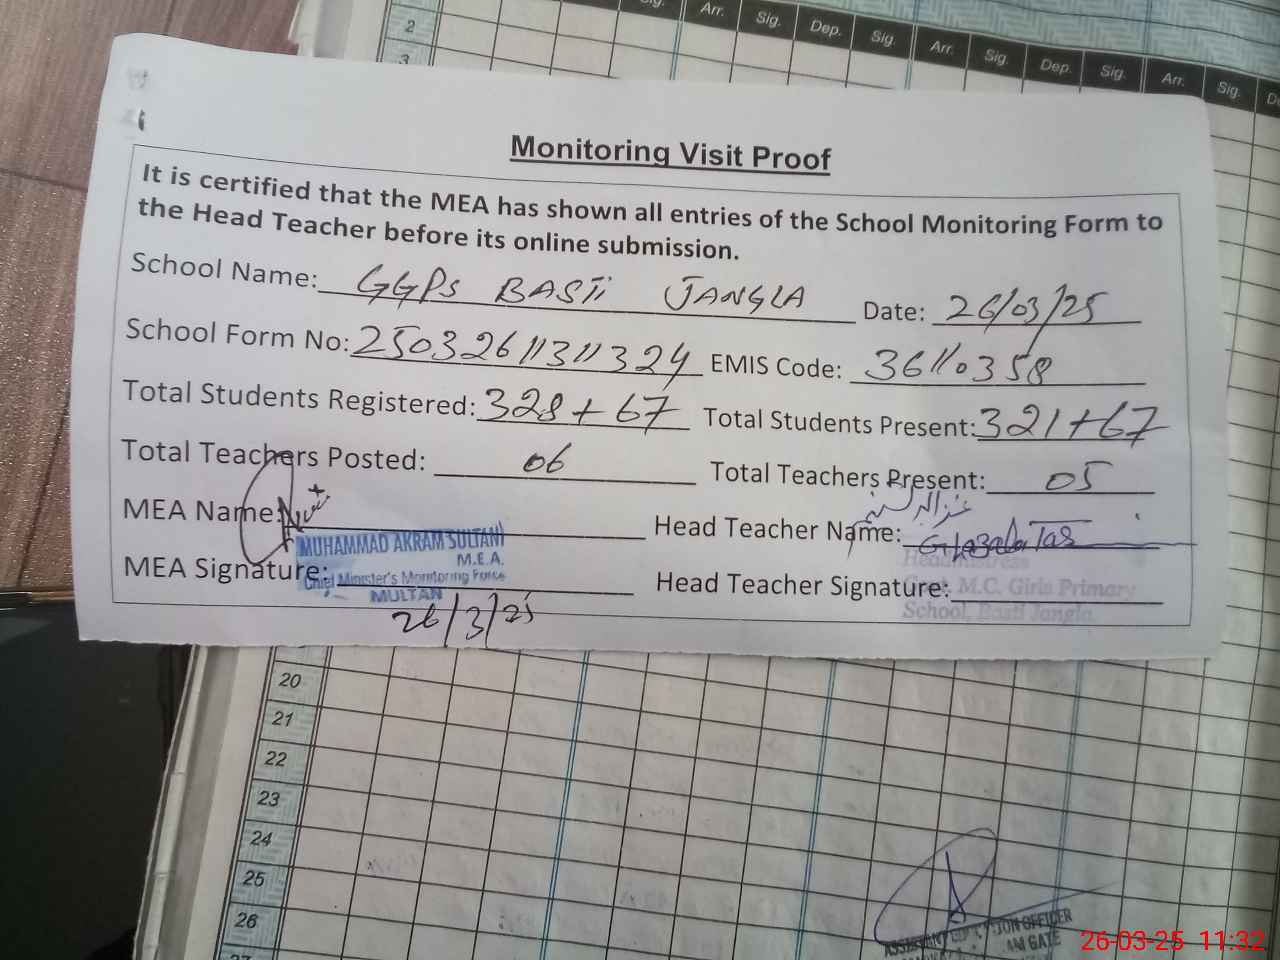 2
3
Sig. Arr. Sig. Dep. Sig. Arr. Sig. Dep. Sig. Arr. Sig.
Monitoring Visit Proof
It is certified that the MEA has shown all entries of the School Monitoring Form to
the Head Teacher before its online submission.
School Name: GGPS BASTi JANGLA Date: 26/03/25
School Form No: 25032611311324 EMIS Code: 36110358
Total Students Registered: 328+67 Total Students Present: 321+67
Total Teachers Posted: 06 Total Teachers Present: 05
MEA Name: Head Teacher Name: Ghazala
MUHAMMAD AKRAM SULTANI
M.E.A.
Chief Minister's Monitoring Force
MULTAN
MEA Signature: Head Teacher Signature:
Headmistress
Govt. M.C. Girls Primary
School, Basti Jangla.
26/3/25
20
21
22
23
24
25
26
27
ASSISTANT EDUCATION OFFICER
GATE
26-03-25 11:32